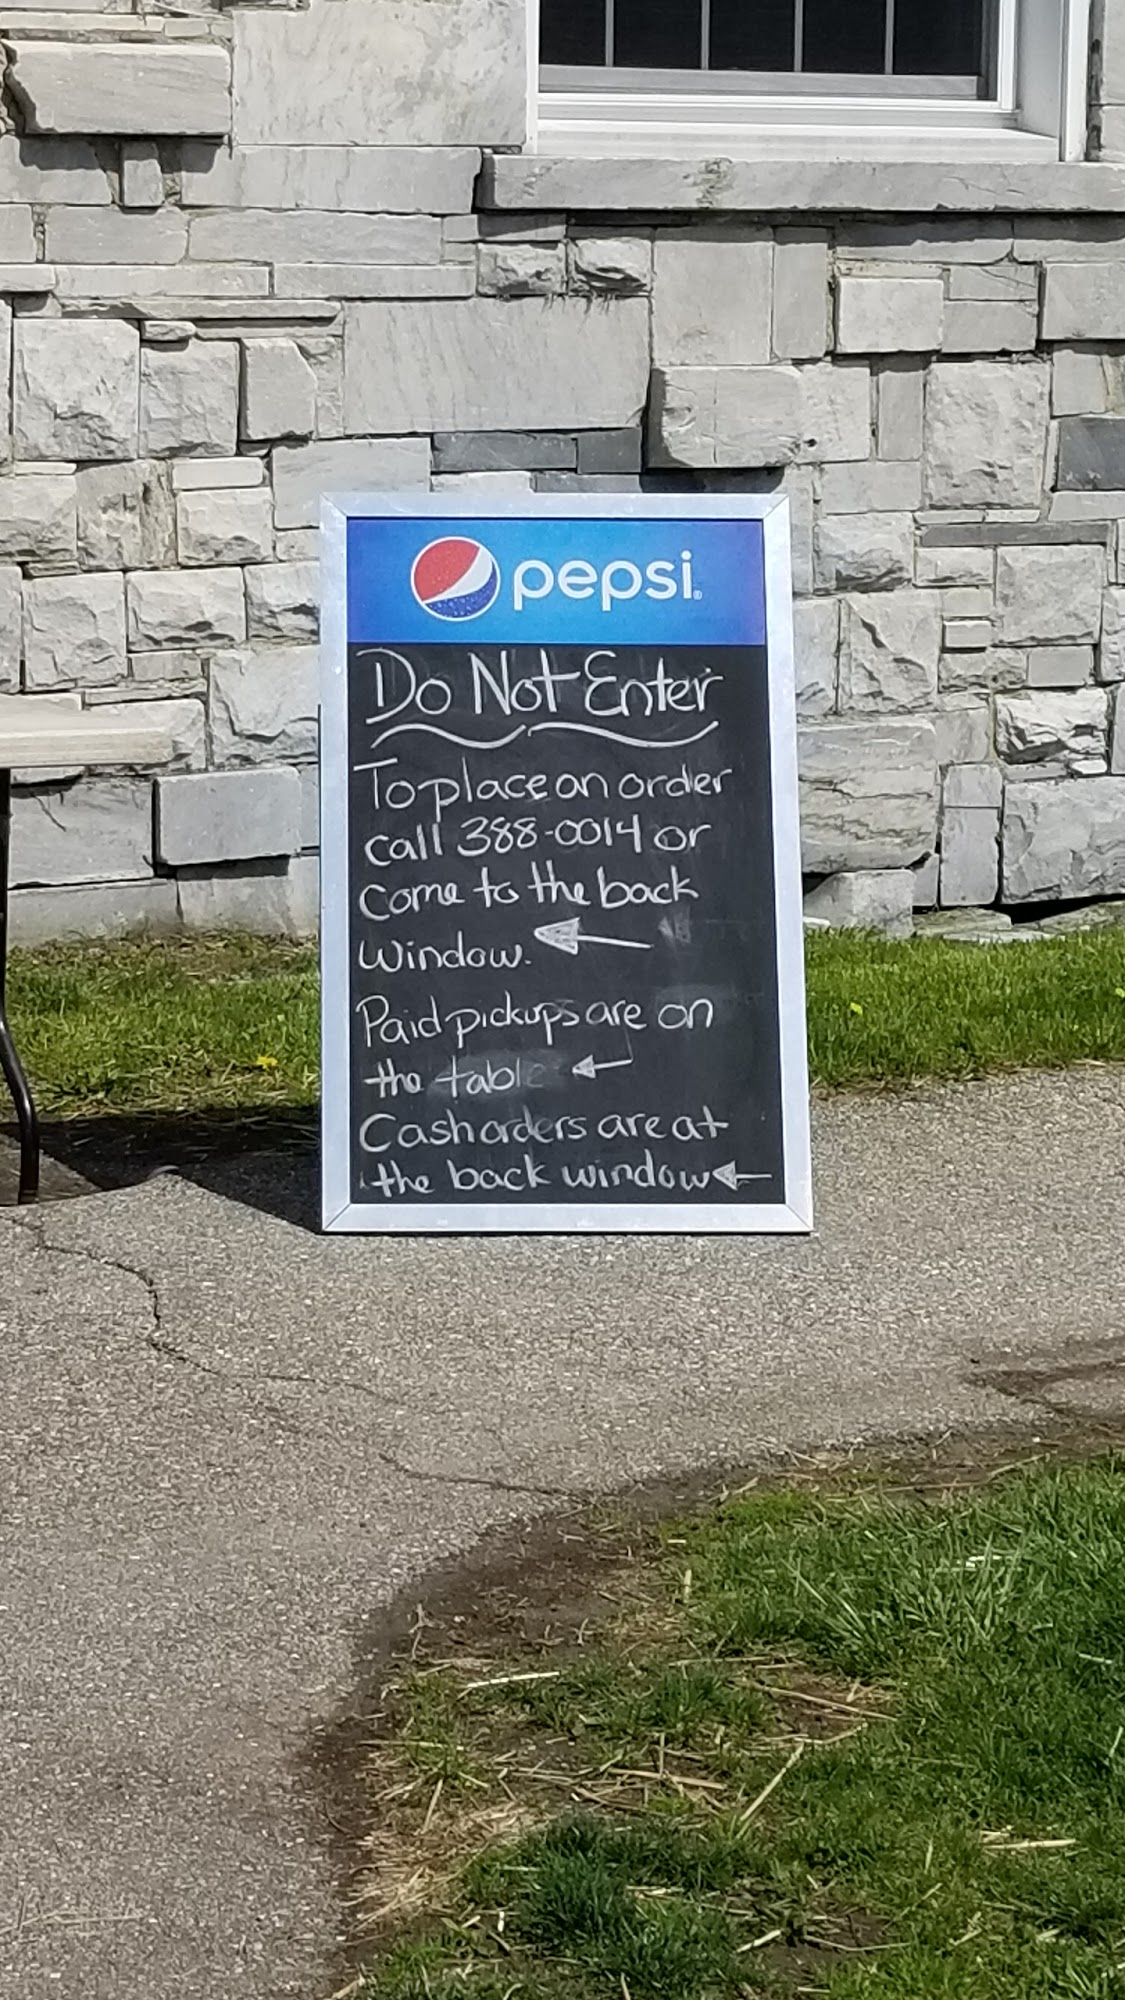 pepsi
Do Not Enter
To place an order
call 388-0014 or
Come to the back
Window.
Paid pickups are on
the table
Cash orders are at
the back window